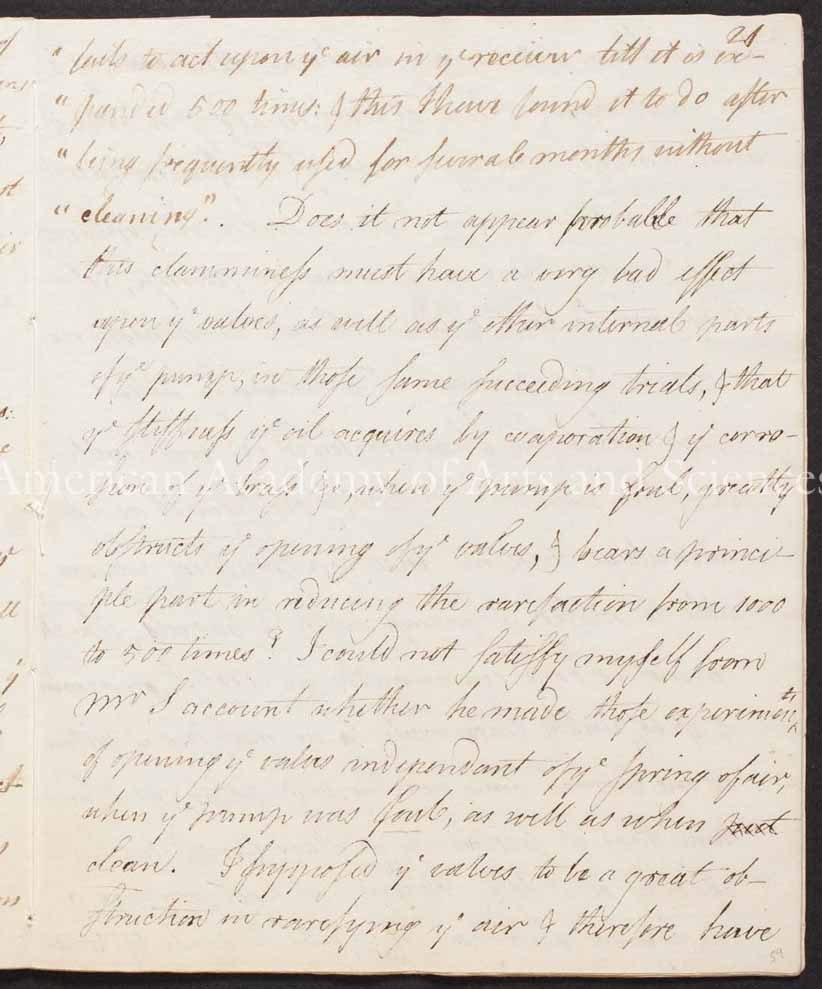 21
" fails to act upon ye air in ye receiver till it is ex-
" panded 500 times: & this I have found it to do after
" being frequently used for several months without
" cleaning". Does it not appear probable that
this clamminess must have a very bad effect
upon ye valves, as well as ye other internal parts
of ye pump, in those same succeeding trials, & that
ye stiffness ye oil acquires by evaporation & ye corro-
sion of ye brass &c, when ye pump is foul, greatly
obstructs ye opening of ye valves, & bears a princi-
ple part in reducing the rarefaction from 1000
to 500 times? I could not satisfy myself from
Mr S account whether he made those experiments
of opening ye valves independant of ye spring of air,
when ye pump was foul, as well as when just
clean. I supposed ye valves to be a great ob-
struction in rarefying ye air & therefore have
59
American Academy of Arts and Sciences